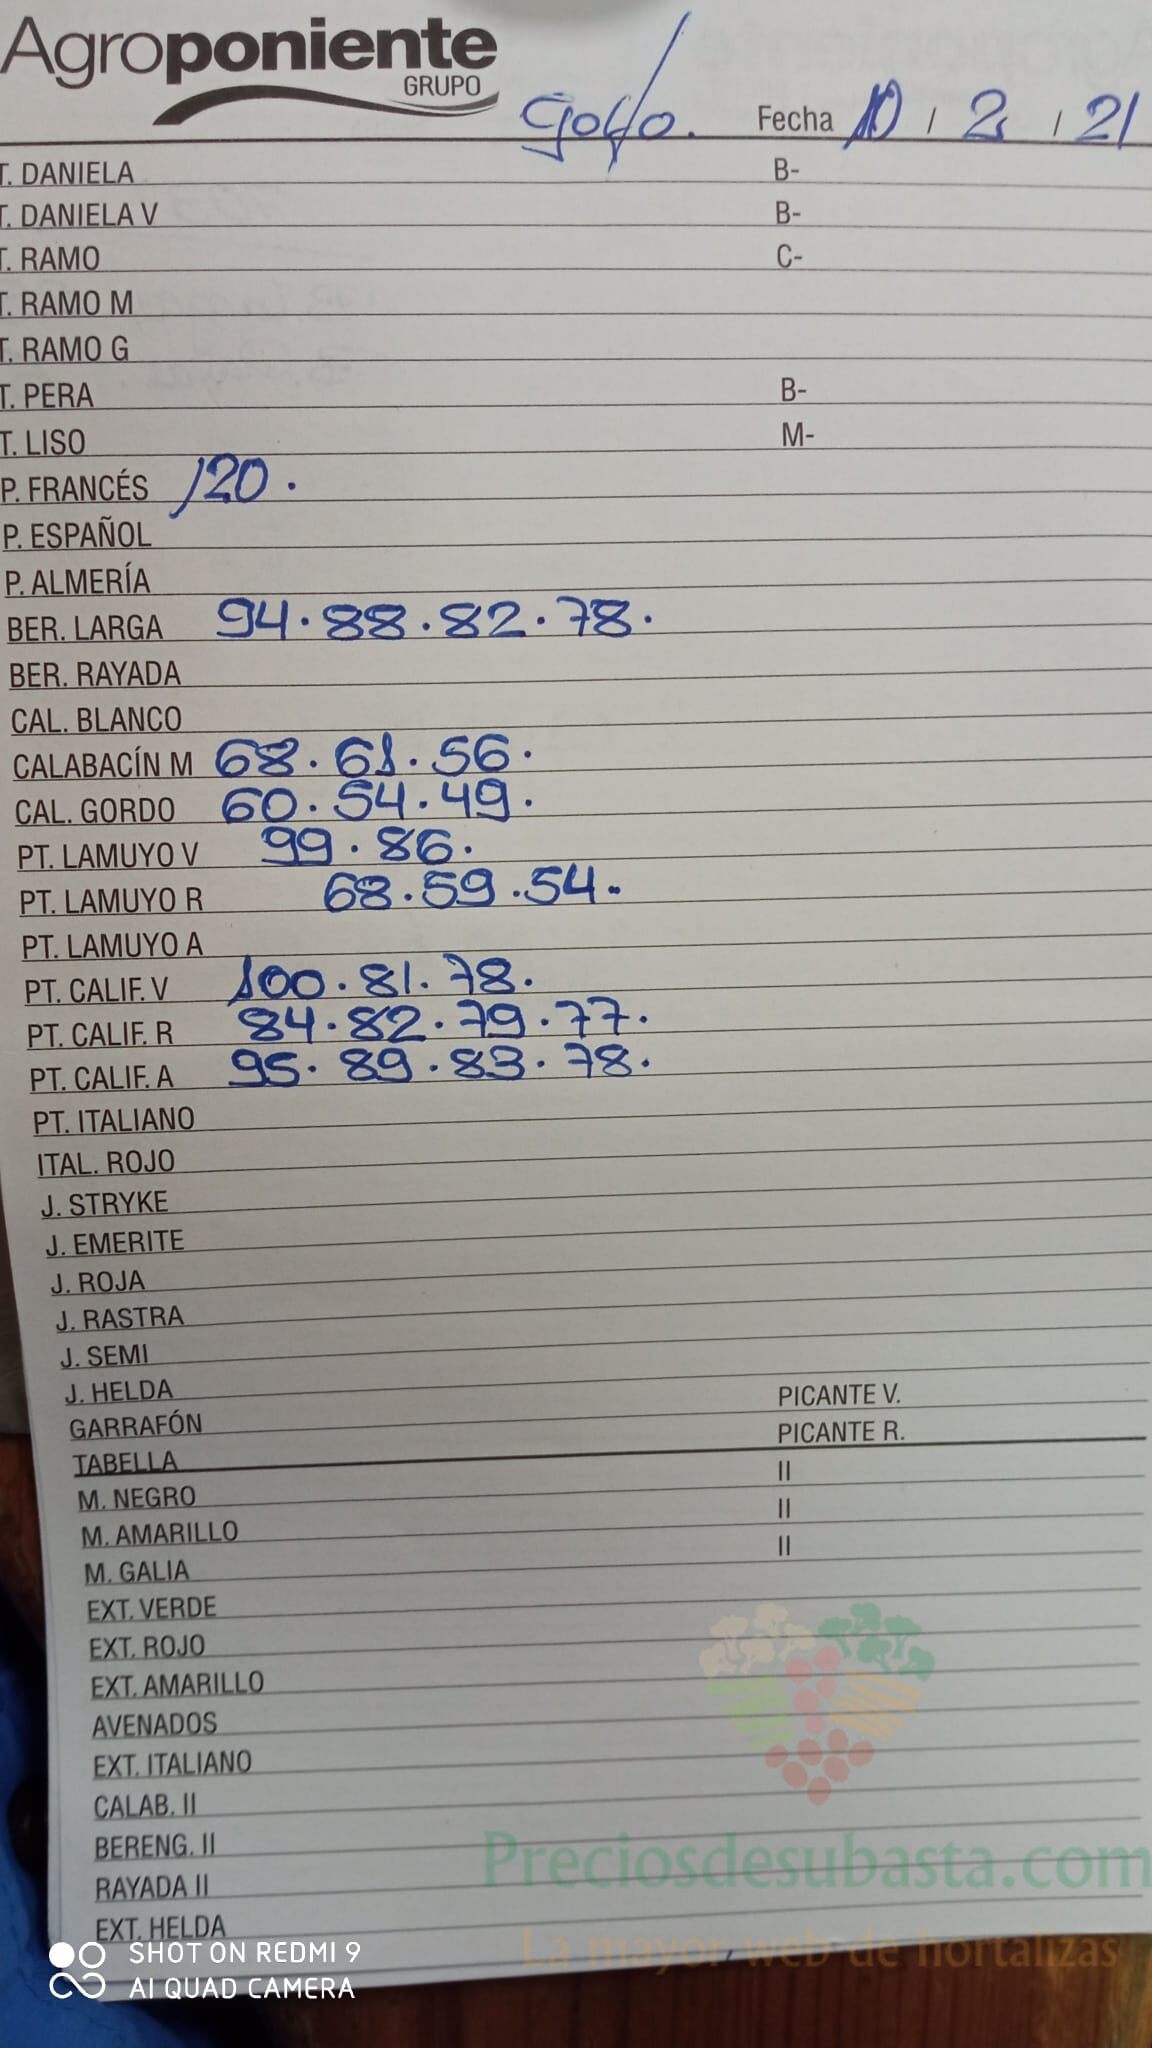 Agroponiente
GRUPO
Golfo. Fecha 10 / 2 / 21
T. DANIELA B-
T. DANIELA V B-
T. RAMO C-
T. RAMO M
T. RAMO G
T. PERA B-
T. LISO M-
P. FRANCÉS 120.
P. ESPAÑOL
P. ALMERÍA
BER. LARGA 94. 88. 82. 78.
BER. RAYADA
CAL. BLANCO
CALABACÍN M 68. 61. 56.
CAL. GORDO 60. 54. 49.
PT. LAMUYO V 99. 86.
PT. LAMUYO R 68. 59. 54.
PT. LAMUYO A
PT. CALIF. V 100. 81. 78.
PT. CALIF. R 84. 82. 79. 77.
PT. CALIF. A 95. 89. 83. 78.
PT. ITALIANO
ITAL. ROJO
J. STRYKE
J. EMERITE
J. ROJA
J. RASTRA
J. SEMI
J. HELDA PICANTE V.
GARRAFÓN PICANTE R.
TABELLA II
M. NEGRO II
M. AMARILLO II
M. GALIA
EXT. VERDE
EXT. ROJO
EXT. AMARILLO
AVENADOS
EXT. ITALIANO
CALAB. II
BERENG. II
Preciosdesubasta.com
RAYADA II
EXT. HELDA
La mayor web de hortalizas
SHOT ON REDMI 9
AI QUAD CAMERA